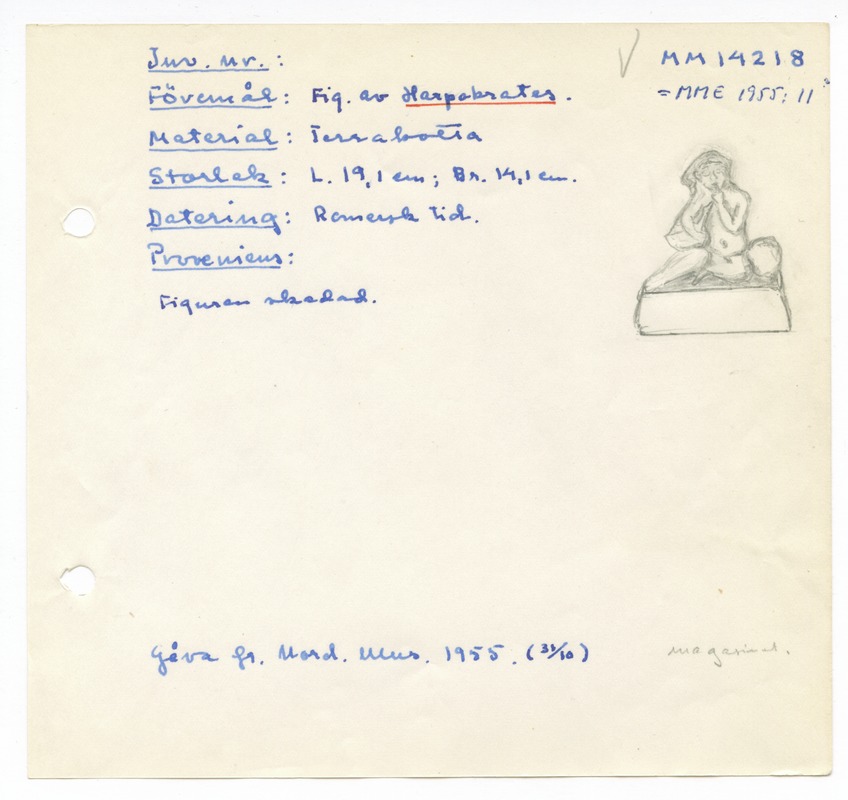 Inv. nr.: MM 14218
Föremål: Fig. av Harpokrates. = MME 1955: 11
Material: Terrakotta
Storlek: L. 19,1 cm; Br. 14,1 cm.
Datering: Romersk tid.
Proveniens:
Figuren skadad.
Gåva fr. Nord. Mus. 1955. (31/10)
magasinet.